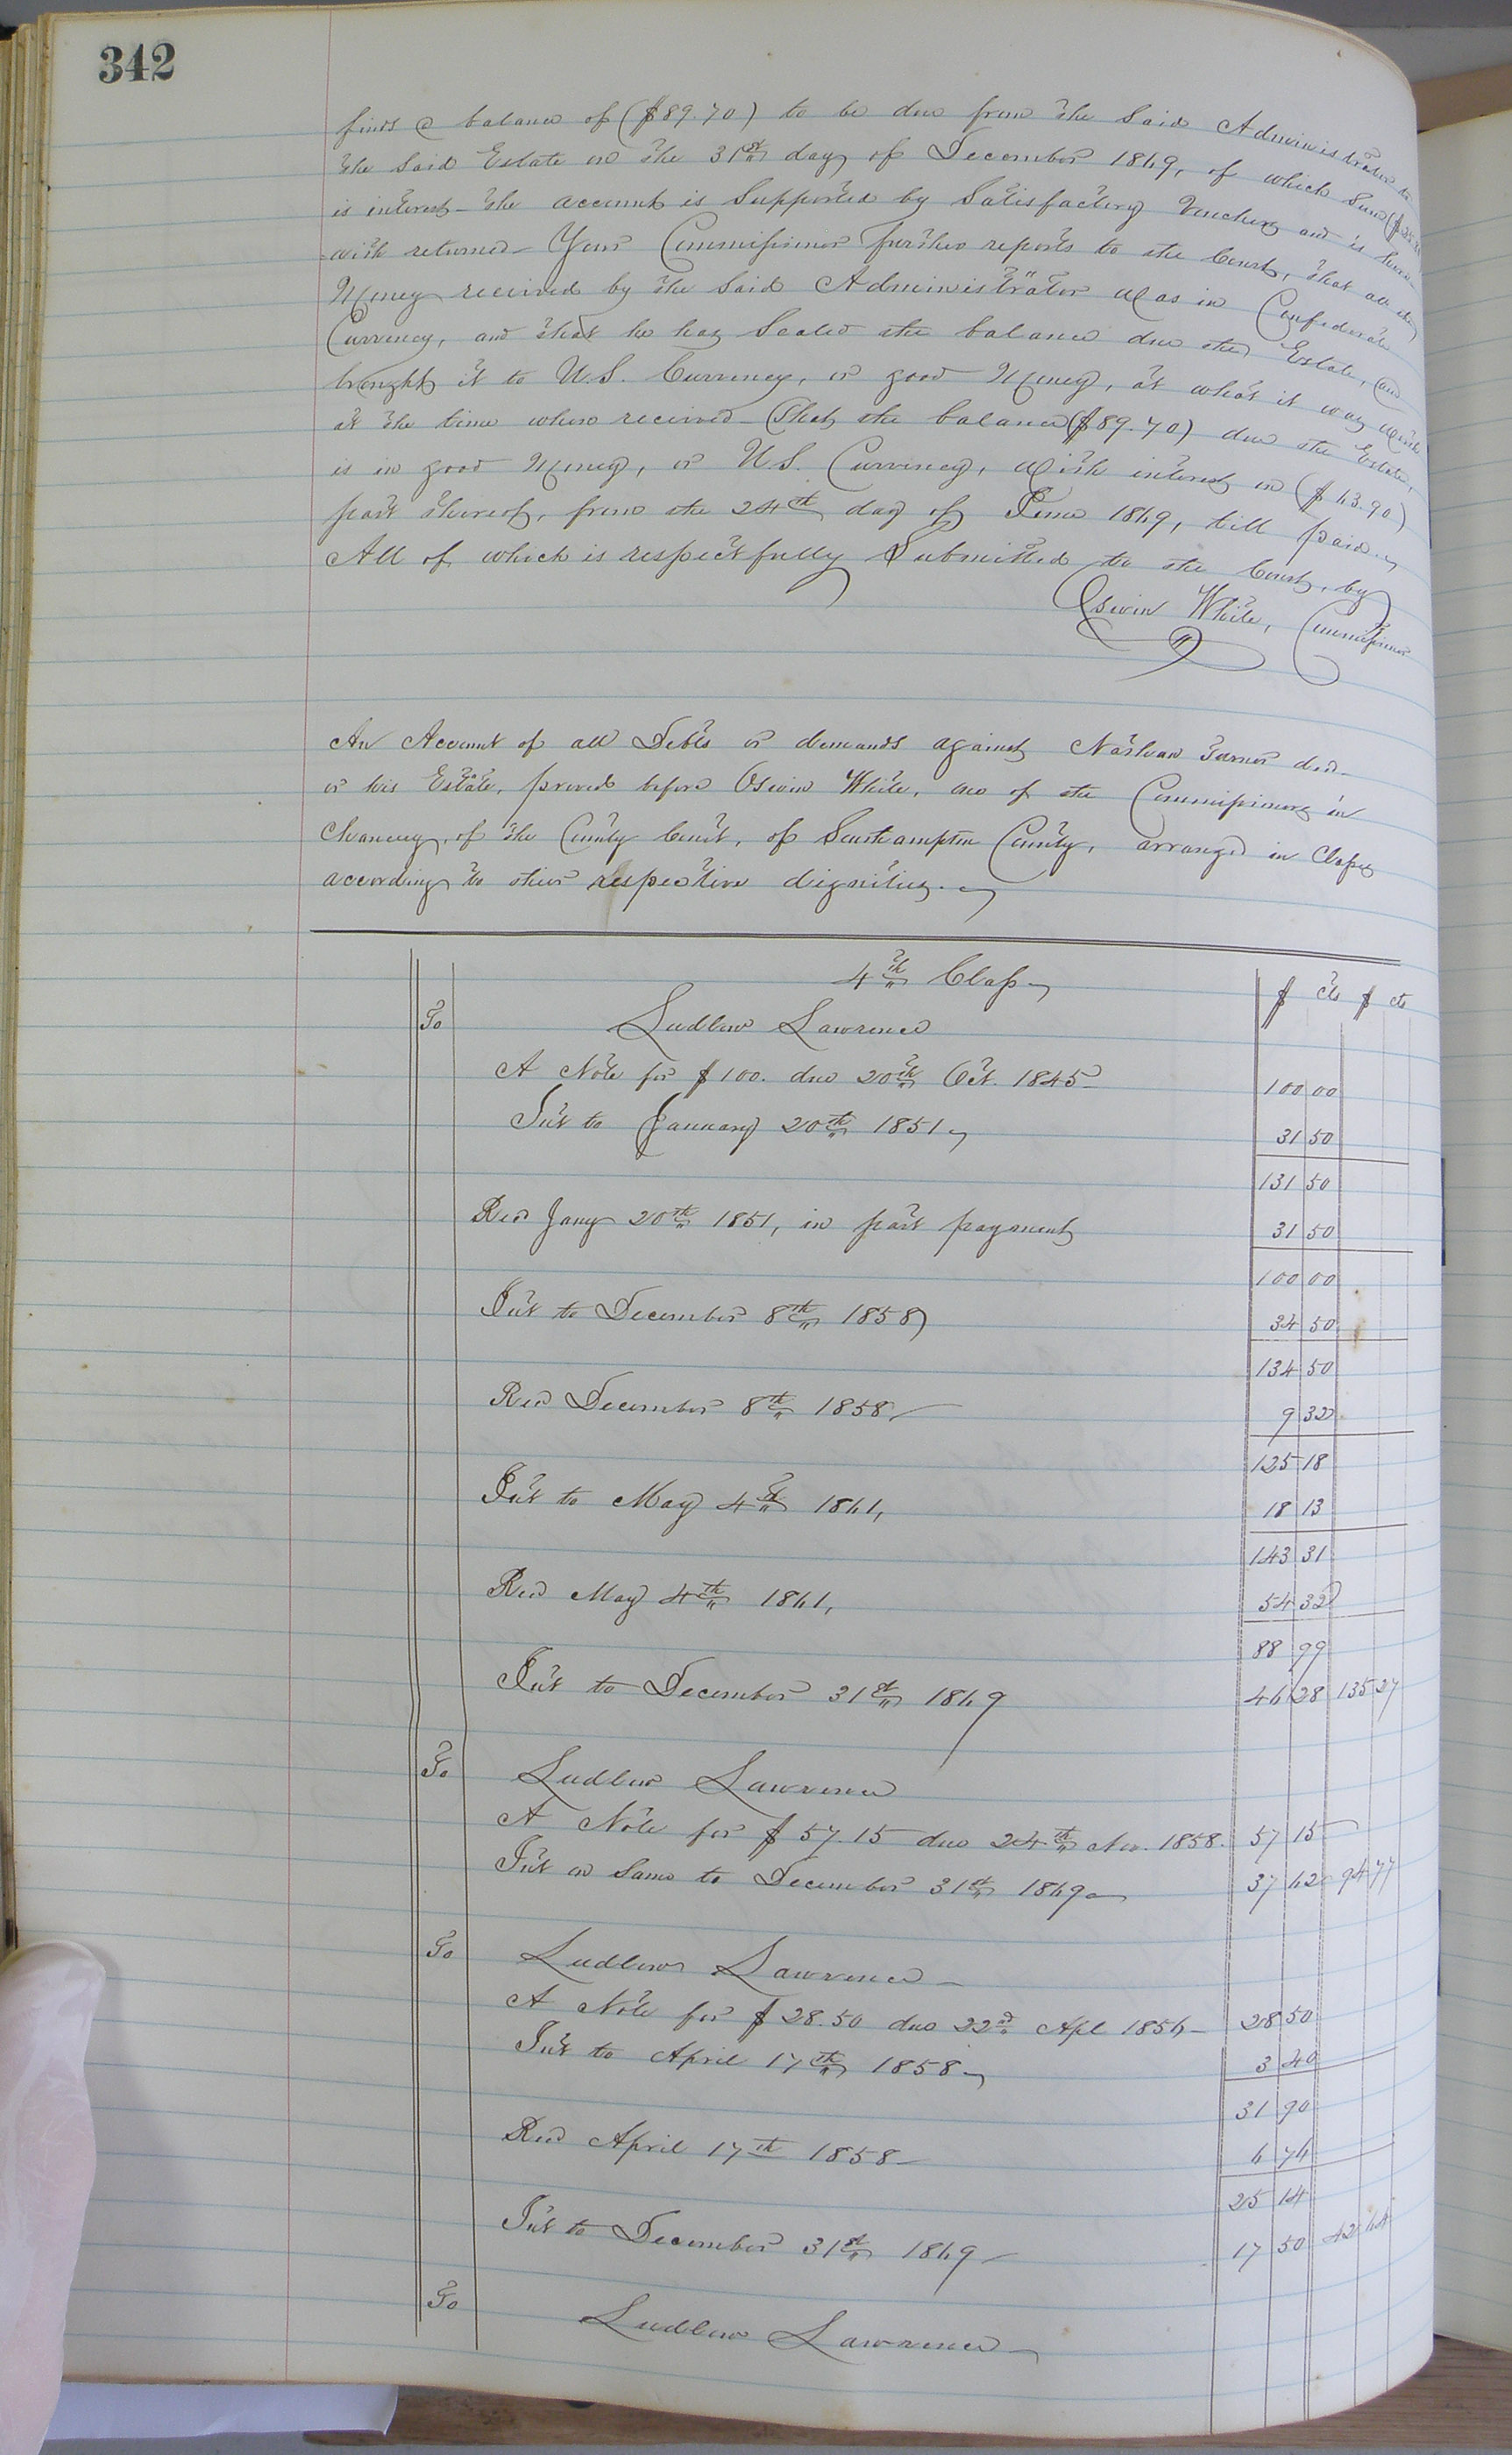 342
finds a balance of ($89.70) to be due from the said Administrator to
the said Estate on the 31st day of December 1869, of which sum
is interest - the account is Supported by Satisfactory Vouchers and is here
with returned - Your Commissioner further reports to the Court, that all the
Money received by the said Administrator was in Confederate
Currency, and that he has Scaled the balance due the Estate, and
brought it to U.S. Currency, or good Money, at what it was worth
at the time when received - That the balance ($89.70) due the Estate,
is in good Money, or U.S. Currency, with interest on ($63.90)
part thereof, from the 24th day of June 1869, till paid.
All of which is respectfully Submitted to the Court, by
Oswin White, Commissioner
An Account of all Debts or demands against Nathan Turner decd
or his Estate, proved before Oswin White, one of the Commissioners in
Chancery, of the County Court, of Southampton County, arranged in Classes
according to their respective dignities.
4th Class
$ cts $ cts
To Ludlow Lawrence
A Note for $100. due 20th Oct. 1845 100 00
Int to January 20th 1851 31 50
131 50
Recd Jany 20th 1851, in part payment 31 50
100 00
Int to December 8th 1858 34 50
134 50
Recd December 8th 1858 9 32
125 18
Int to May 4th 1861, 18 13
143 31
Recd May 4th 1861, 54 32
88 99
Int to December 31st 1869 46 28 135 27
To Ludlow Lawrence
A Note for $57.15 due 24th Nov. 1858. 57 15
Int on Same to December 31st 1869 37 62 94 77
To Ludlow Lawrence
A Note for $28.50 due 22nd Apl 1856 28 50
Int to April 17th 1858 3 40
31 90
Recd April 17th 1858 6 76
25 14
Int to December 31st 1869 17 50 42 64
To Ludlow Lawrence